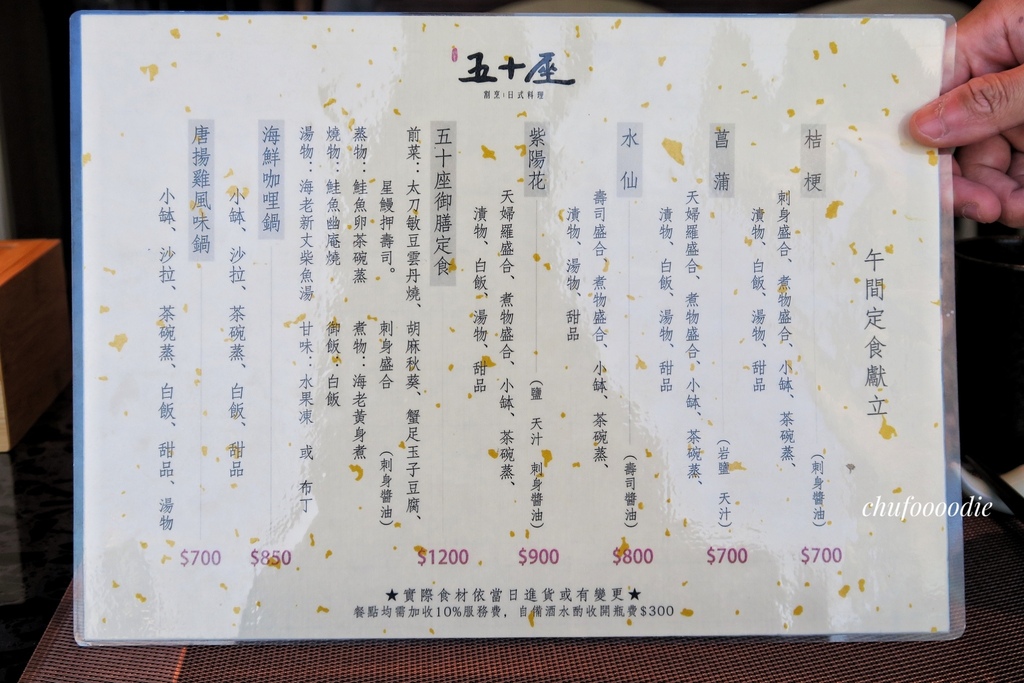 五十座
割烹|日式料理
午間定食獻立
桔梗
(刺身醬油)
$700
刺身盛合、煮物盛合、小缽、茶碗蒸、
漬物、白飯、湯物、甜品
菖蒲
(岩鹽 天汁)
$700
天婦羅盛合、煮物盛合、小缽、茶碗蒸、
漬物、白飯、湯物、甜品
水仙
(壽司醬油)
$800
壽司盛合、煮物盛合、小缽、茶碗蒸、
漬物、湯物、甜品
紫陽花
(鹽 天汁 刺身醬油)
$900
天婦羅盛合、煮物盛合、小缽、茶碗蒸、
漬物、白飯、湯物、甜品
五十座御膳定食
$1200
前菜：太刀敏豆雲丹燒、胡麻秋葵、蟹足玉子豆腐、
星鰻押壽司。 刺身盛合 (刺身醬油)
蒸物：鮭魚卵茶碗蒸 煮物：海老黃身煮
燒物：鮭魚幽庵燒 御飯：白飯
湯物：海老新丈柴魚湯 甘味：水果凍 或 布丁
海鮮咖哩鍋
$850
小缽、沙拉、茶碗蒸、白飯、甜品
唐揚雞風味鍋
$700
小缽、沙拉、茶碗蒸、白飯、甜品、湯物
★實際食材依當日進貨或有變更★
餐點均需加收10%服務費，自備酒水酌收開瓶費$300
chufoooodie